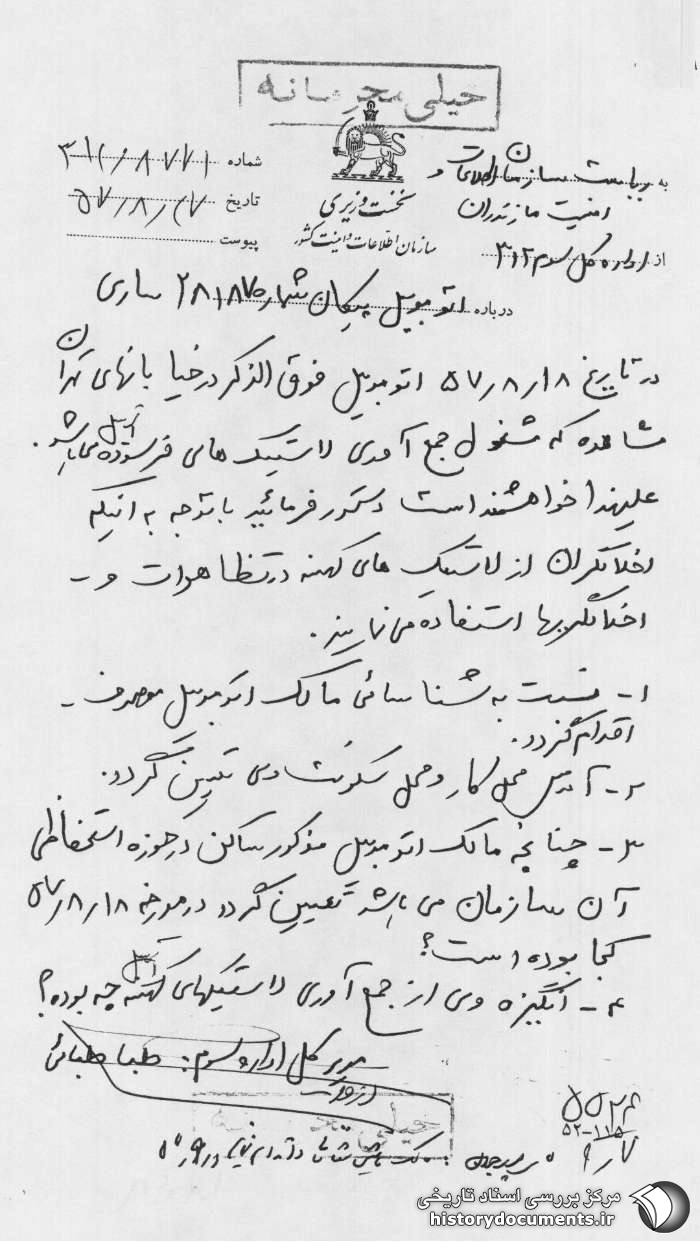 خیلی محرمانه
به ریاست سازمان اطلاعات و
امنیت مازندران
از اداره کل سوم ۳۱۲
نخست وزیری
سازمان اطلاعات و امنیت کشور
شماره ۳۱۲/۸۷۷۱
تاریخ ۵۷/۸/۲۷
پیوست
درباره اتومبیل پیکان شماره ۲۸۱۸۷ ساری
در تاریخ ۵۷/۸/۱۸ اتومبیل فوق الذکر در خیابانهای تهران
مشاهده که مشغول جمع آوری لاستیک های فرسوده اتومبیل می باشد.
علیهذا خواهشمند است دستور فرمائید با توجه به اینکه
اخلالگران از لاستیک های کهنه در تظاهرات و -
اخلالگریها استفاده می نمایند.
۱- نسبت به شناسائی مالک اتومبیل موصوف -
اقدام گردد.
۲- آدرس محل کار و محل سکونت وی تعیین گردد.
۳- چنانچه مالک اتومبیل مذکور ساکن در حوزه استحفاظی
آن سازمان می باشد تعیین گردد در مورخه ۵۷/۸/۱۸
کجا بوده است؟
۴- انگیزه وی از جمع آوری لاستیکهای کهنه چه بوده؟
مدیر کل اداره سوم: طباطبائی
از طرف
خیلی محرمانه
۵۵۲۴
۵۲-۱۱۵
مرکز بررسی اسناد تاریخی
historydocuments.ir